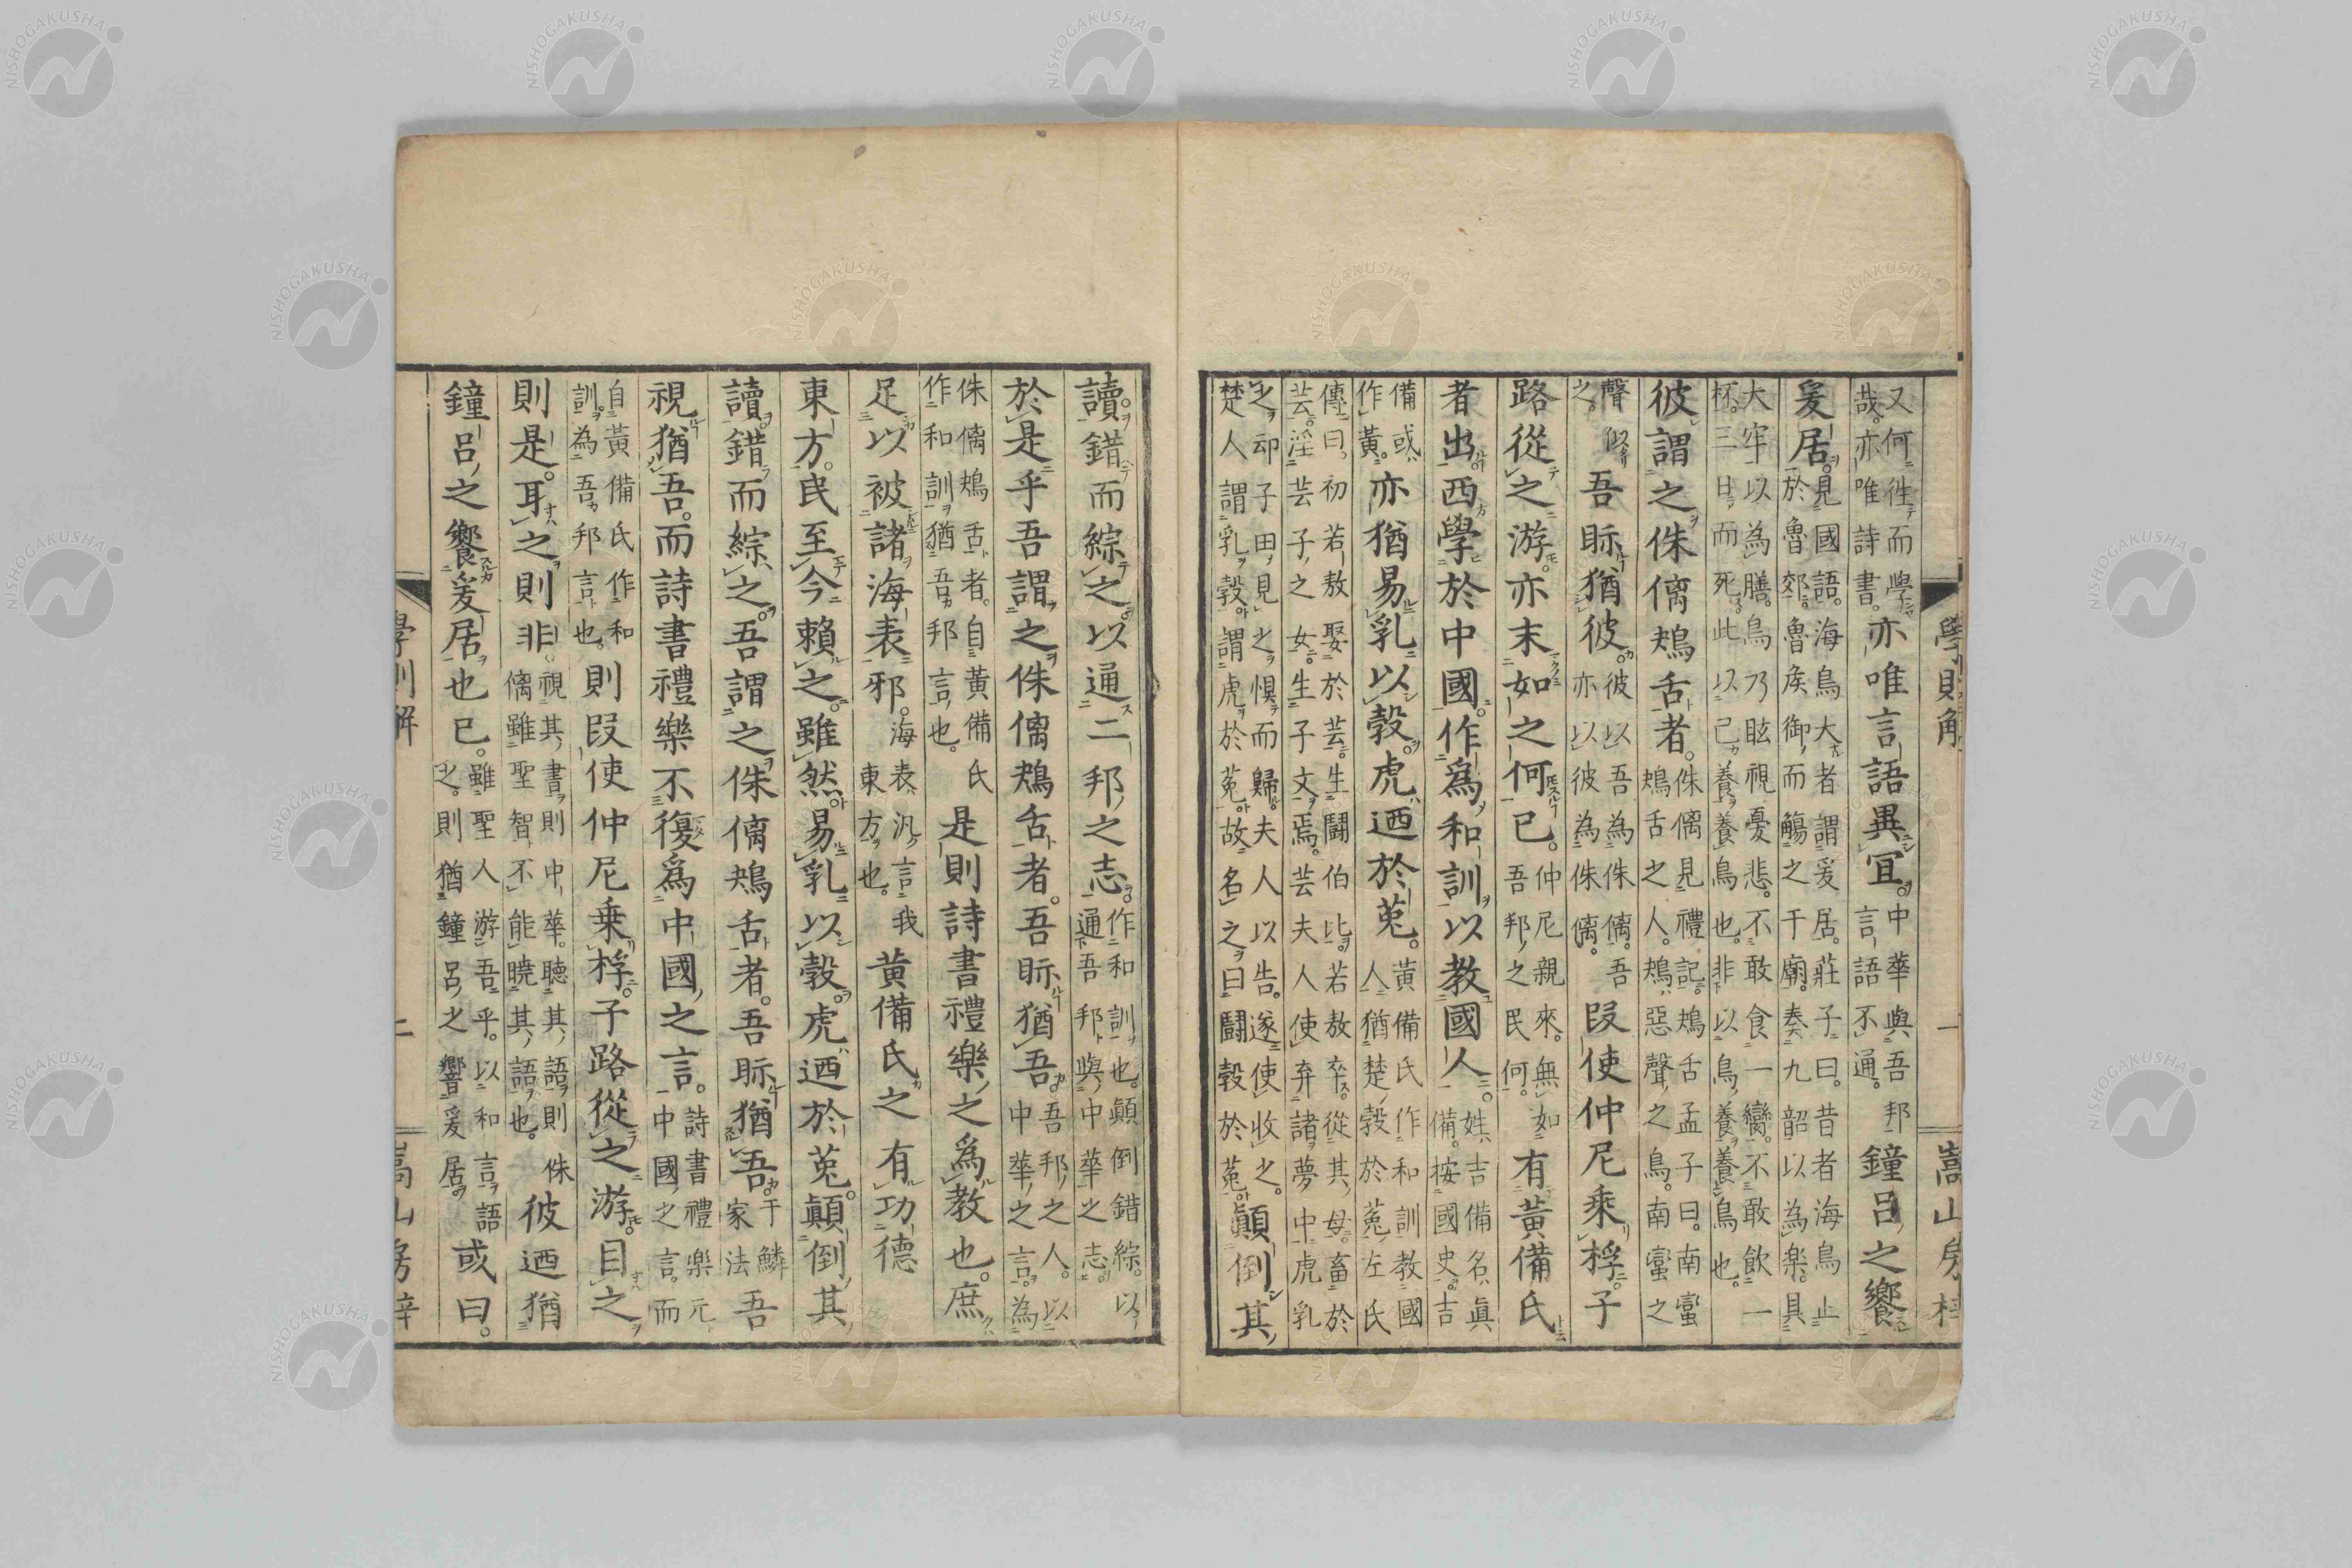 學則解 一 嵩山房梓
又何徃而學哉。亦唯詩書。亦唯言語異宜。中華與吾邦言語不通。鐘呂之饗
爰居。見國語。海鳥大者謂爰居。莊子曰。昔者海鳥止於魯郊。魯矦御而觴之于廟。奏九韶以為楽。具
大牢以為膳。鳥乃眩視憂悲。不敢食一臠。不敢飲一杯。三日而死。此以己養養鳥也。非以鳥養養鳥也。
彼謂之侏𠌯鴂舌者。侏𠌯見禮記。鴂舌孟子曰。南蛮鴂舌之人。鴂惡聲之鳥。南蛮之
聲似之。吾眎猶彼。彼以吾為侏𠌯。吾亦以彼為侏𠌯。叚使仲尼乗桴。子
路從之游。亦末如之何已。仲尼親來。無如吾邦之民何。有黃備氏
者出。西學於中國。作爲和訓以教國人。姓吉備名眞備。按國史。吉
備或作黃。亦猶易乳以穀虎迺於菟。黃備氏作和訓教國人猶楚穀於菟。左氏
傳曰。初若敖娶於芸。生鬭伯比。若敖卒。從其母畜於芸。淫芸子之女。生子文焉。芸夫人使弃諸夢中虎乳
之。却子田見之。懼而歸。夫人以告。遂使收之。楚人謂乳穀謂虎於菟。故名之曰鬭穀於菟。顛倒其
讀。錯而綜之。以通二邦之志。作和訓也。顛倒錯綜。以通吾邦與中華之志。
於是乎吾謂之侏𠌯鴂舌者。吾眎猶吾。吾邦之人。以中華之言。為
侏𠌯鴂舌者。自黃備氏作和訓猶吾邦言也。是則詩書禮樂之爲教也。庶
足以被諸海表邪。海表。汎言東方也。我黃備氏之有功德
東方。民至今賴之。雖然易乳以穀虎迺於菟。顛倒其
讀。錯而綜之。吾謂之侏𠌯鴂舌者。吾眎猶吾。于鱗家法吾
視猶吾。而詩書禮樂不復爲中國之言。詩書禮楽元中國之言。而
自黃備氏作和訓。為吾邦言也。則叚使仲尼乗桴。子路從之游。目之
則是。耳之則非。視其書則中華。聴其語則侏𠌯雖聖智不能曉其語也。彼迺猶
鐘呂之饗爰居也已。雖聖人游吾乎。以和言語之。則猶鐘呂之響爰居。或曰。
學則解 二 嵩山房梓